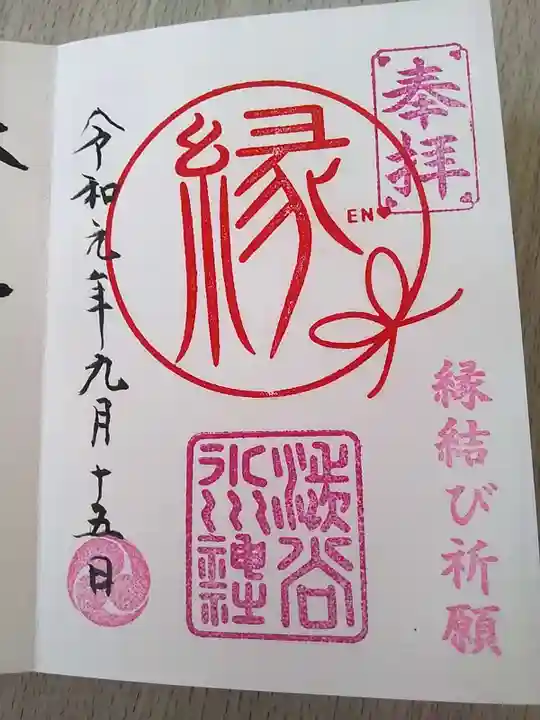 奉拝
縁
EN
縁結び祈願
渋谷
氷川神社
令和元年九月十五日